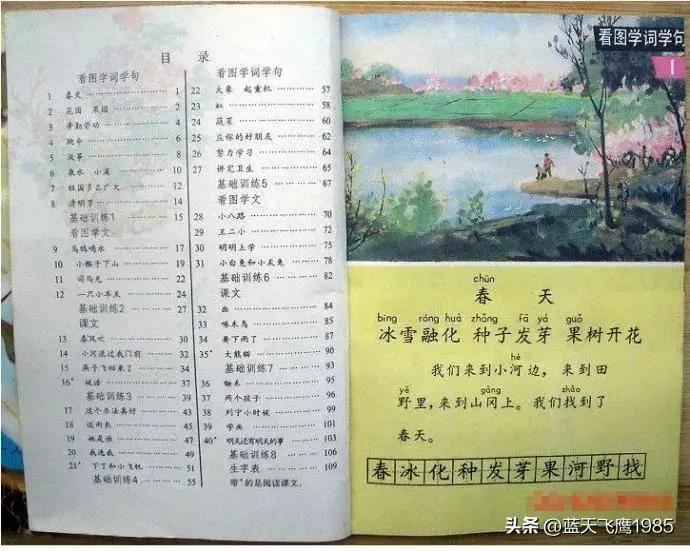 目 录
看图学词学句
1 春天 1
2 花园 果园 2
3 辛勤劳动 4
4 跳伞 6
5 菠萝 8
6 泉水 小溪 10
7 祖国多么广大 12
8 清明节 13
基础训练1 15
看图学文
9 乌鸦喝水 17
10 小猴子下山 19
11 司马光 22
12 一只小羊羔 24
基础训练2 27
课文
13 春风吹 31
14 小河流过我门前 32
15 燕子飞回来了 34
16* 谜语 37
基础训练3 39
17 这个办法真好 43
18 送雨衣 45
19 她是谁 47
20 我选我 49
21* 丁丁和小飞机 51
基础训练4 55
看图学词学句
22 大象 起重机 57
23 虹 58
24 蔬菜 60
25 庄稼的好朋友 62
26 努力学习 64
27 讲究卫生 65
基础训练5 67
看图学文
28 小八路 70
29 王二小 72
30 明明上学 75
31 小白兔和小灰兔 78
基础训练6 82
课文
32 画 84
33 啄木鸟 85
34 要下雨了 87
35* 大熊猫 90
基础训练7 93
36 锄禾 95
37 两个孩子 96
38 列宁小时候 99
39 学画 101
40* 明天还有明天的事 103
基础训练8 106
生字表 109
带*的是阅读课文。
看图学词学句
1
chūn
春 天
bīng róng huà zhǒng fā yá guǒ
冰雪融化 种子发芽 果树开花
hé
我们来到小河边，来到田
yě gāng zhǎo
野里，来到山冈上。我们找到了
春天。
春冰化种发芽果河野找
头条 @蓝天飞鹰1985